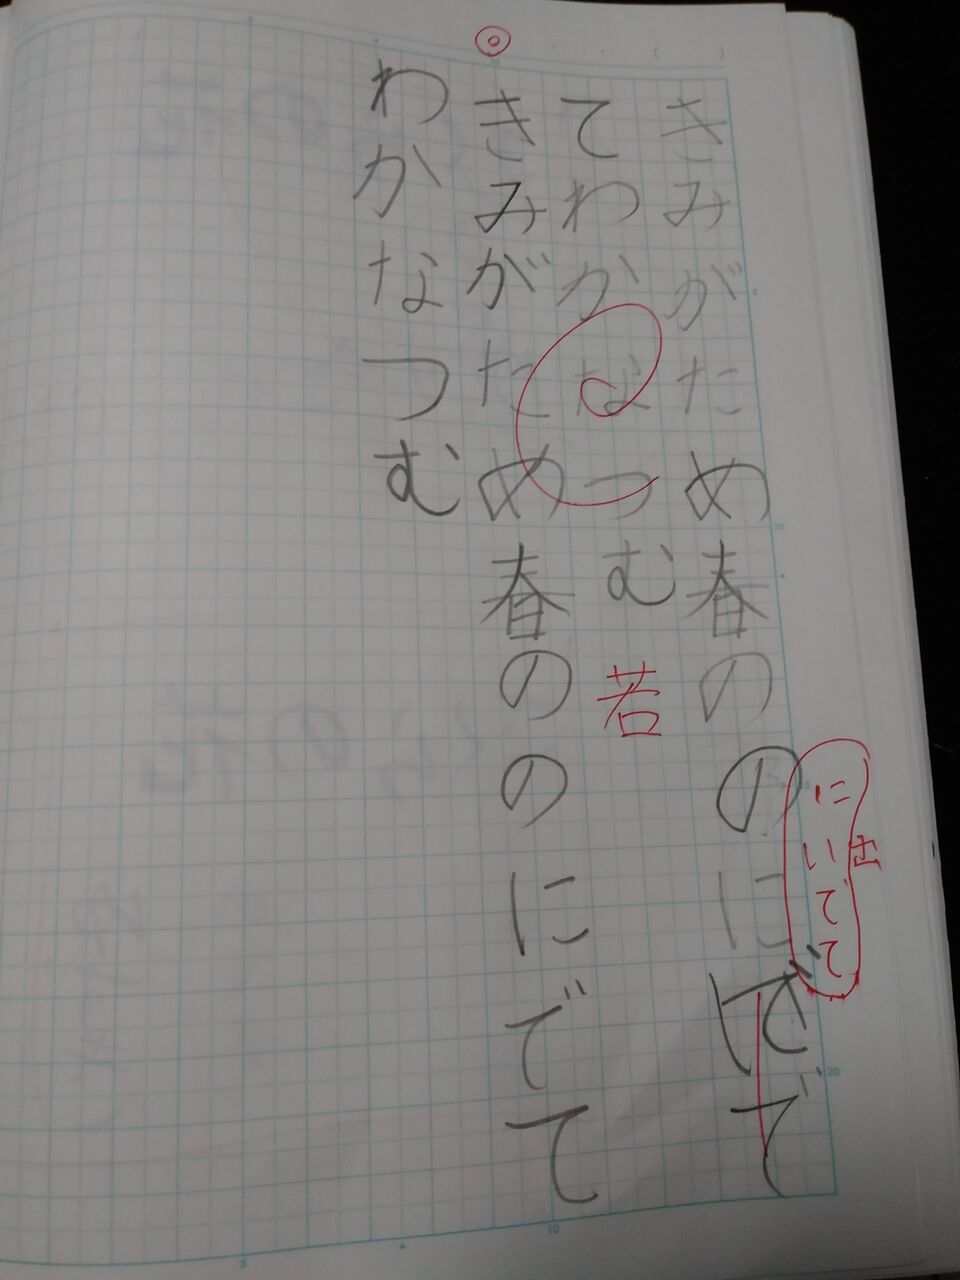 きみがため春ののにでで
てわかなつむ
きみがため春ののにでて
わかなつむ
にいでて
出
若